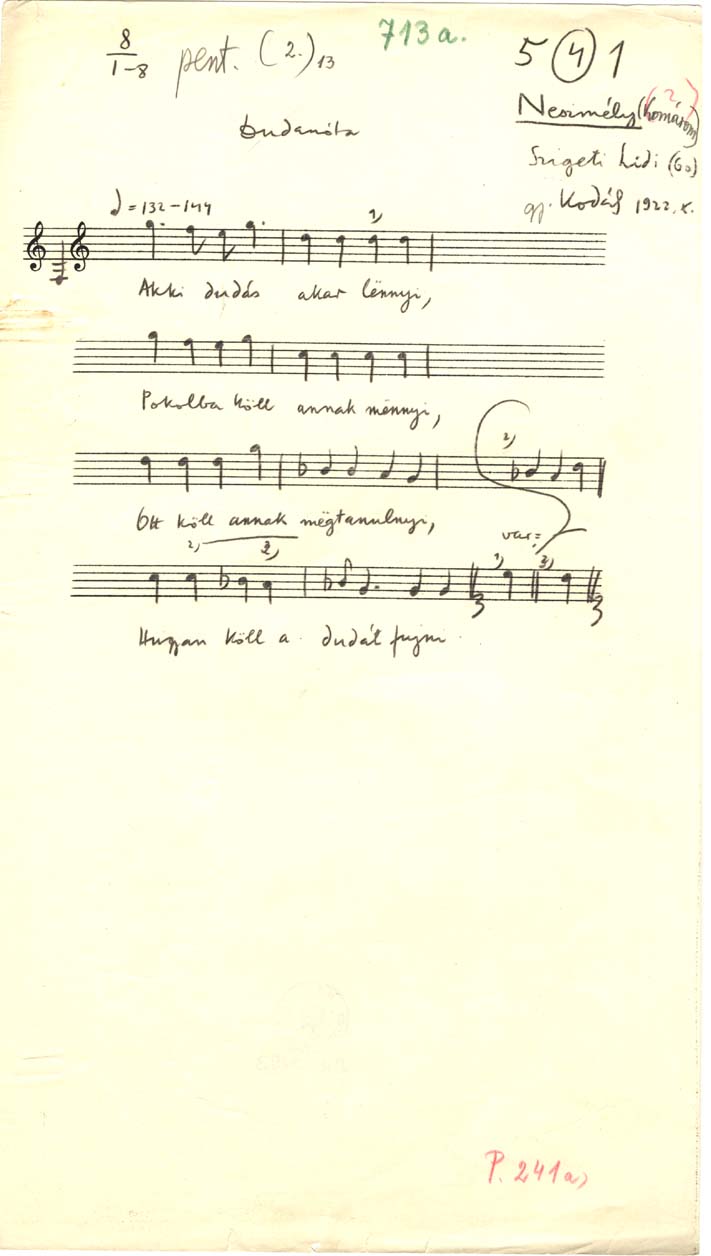 8
1-8
pent. (2.) 13
713 a.
5 (4) 1
Neszmély (Komárom)
(2)
Dudanóta
Szigeti Lidi (60)
gy. Kodály 1922. X.
= 132-144
1)
Akki dudás akar lënnyi,
Pokolba köll annak mënnyi,
2)
Ott köll annak mëgtanulnyi,
var:
2) 3) 1) 3)
Hugyan köll a dudát fujni.
P. 241 a)